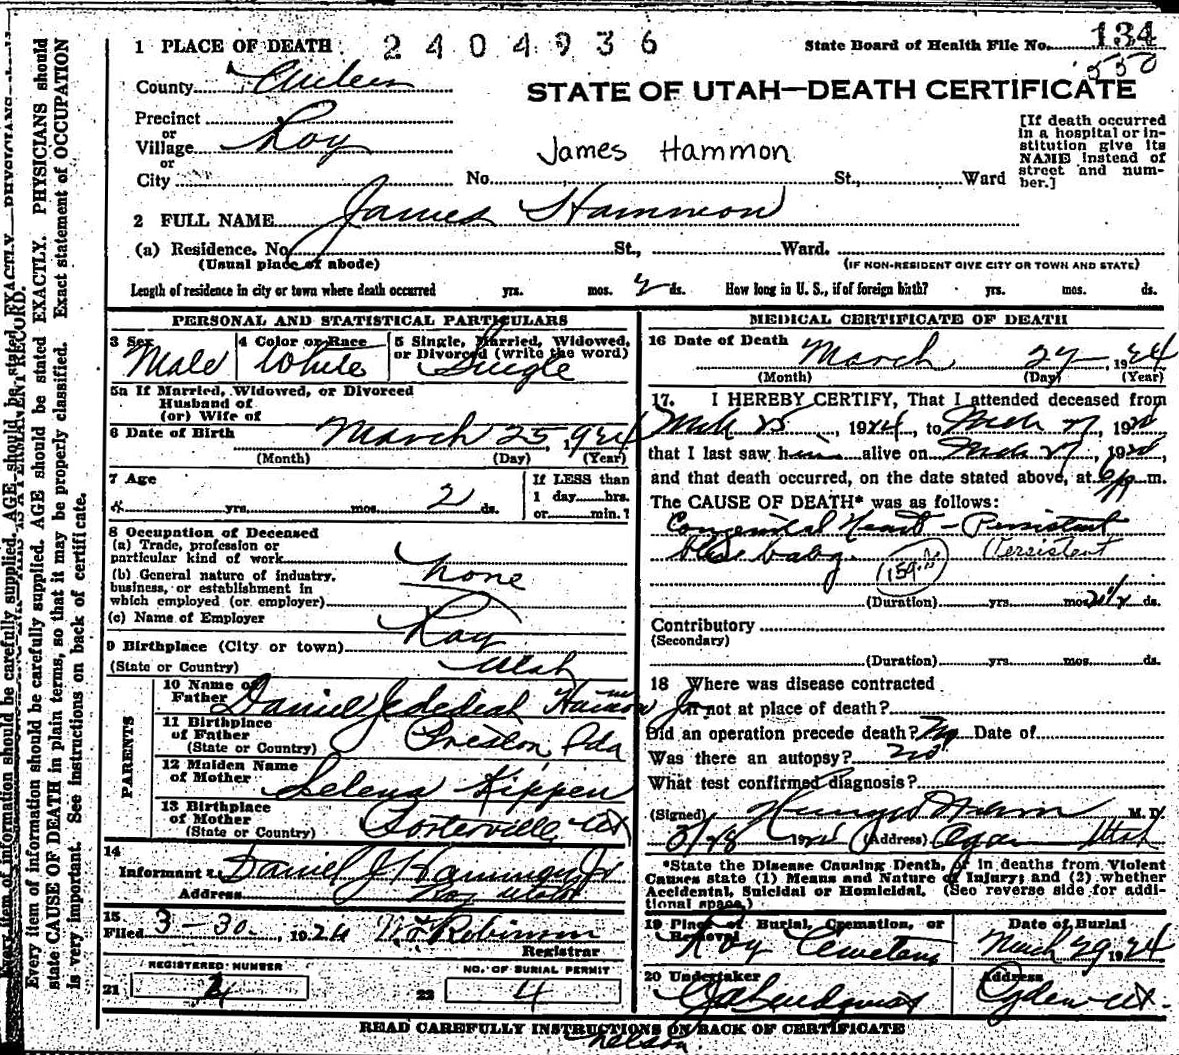 1 PLACE OF DEATH 2404936 State Board of Health File No. 134
550
County
STATE OF UTAH—DEATH CERTIFICATE
Precinct
or
Village Roy
or
City No. St., Ward
[If death occurred
in a hospital or in-
stitution give its
NAME instead of
street and num-
ber.]
James Hammon
2 FULL NAME James Hammon
(a) Residence. No. St., Ward.
(Usual place of abode) (IF NON-RESIDENT GIVE CITY OR TOWN AND STATE)
Length of residence in city or town where death occurred yrs. mos. 2 ds. How long in U. S., if of foreign birth? yrs. mos. ds.
PERSONAL AND STATISTICAL PARTICULARS
3 Sex Male
4 Color or Race White
5 Single, Married, Widowed,
or Divorced (write the word)
Single
5a If Married, Widowed, or Divorced
Husband of
(or) Wife of
6 Date of Birth March 25, 1924
(Month) (Day) (Year)
7 Age
yrs. mos. 2 ds.
If LESS than
1 day hrs.
or min.?
8 Occupation of Deceased
(a) Trade, profession or
particular kind of work none
(b) General nature of industry,
business, or establishment in
which employed (or employer)
(c) Name of Employer
9 Birthplace (City or town) Roy
(State or Country) Utah
PARENTS
10 Name of
Father Daniel Jedediah Hammon Jr
11 Birthplace
of Father Preston, Ida
(State or Country)
12 Maiden Name
of Mother Selena Kippen
13 Birthplace
of Mother Porterville Ut
(State or Country)
14
Informant Daniel J Hammon Jr
Address Roy Utah
15
Filed 3-30, 1924 Robinson
Registrar
REGISTERED NUMBER
21 4
NO. OF BURIAL PERMIT
22 4
MEDICAL CERTIFICATE OF DEATH
16 Date of Death March 27, 1924
(Month) (Day) (Year)
17. I HEREBY CERTIFY, That I attended deceased from
Mch 25, 1924, to Mch 27, 192
that I last saw him alive on Mch 27, 192
and that death occurred, on the date stated above, at m.
The CAUSE OF DEATH* was as follows:
Congenital Heart - Persistent
blue baby. 159 (Persistent
(Duration) yrs. mos. 2 1/2 ds.
Contributory
(Secondary)
(Duration) yrs. mos. ds.
18 Where was disease contracted
if not at place of death?
Did an operation precede death? No Date of
Was there an autopsy? no
What test confirmed diagnosis?
(Signed) M. D.
3/28 192 (Address) Ogden Utah
*State the Disease Causing Death, or in deaths from Violent
Causes state (1) Means and Nature of Injury; and (2) whether
Accidental, Suicidal or Homicidal. (See reverse side for addi-
tional space.)
19 Place of Burial, Cremation, or
Removal Roy Cemetery
Date of Burial
March 29 1924
20 Undertaker
Address
Ogden Ut.
READ CAREFULLY INSTRUCTIONS ON BACK OF CERTIFICATE
Nelson.
Every item of information should be carefully supplied. AGE should be stated EXACTLY. PHYSICIANS should
state CAUSE OF DEATH in plain terms, so that it may be properly classified. Exact statement of OCCUPATION
is very important. See instructions on back of certificate.